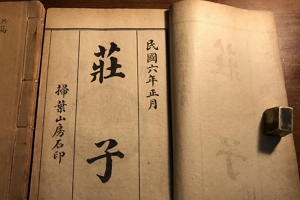 民國六年正月
莊子
掃葉山房石印